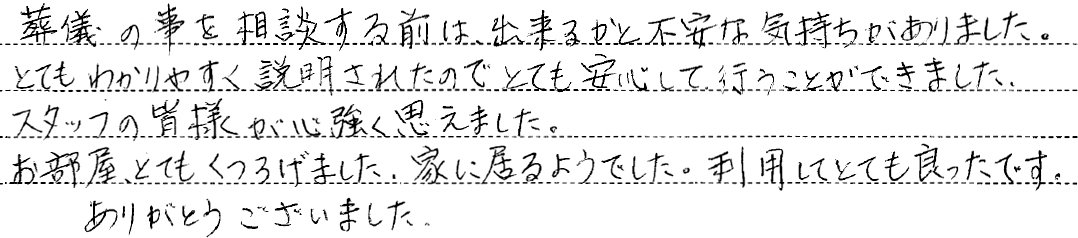 葬儀の事を相談する前は、出来るかと不安な気持ちがありました。
とてもわかりやすく説明されたのでとても安心して行うことができました、
スタッフの皆様が心強く思えました。
お部屋、とてもくつろげました、家に居るようでした。利用してとても良ったです。
ありがとうございました、